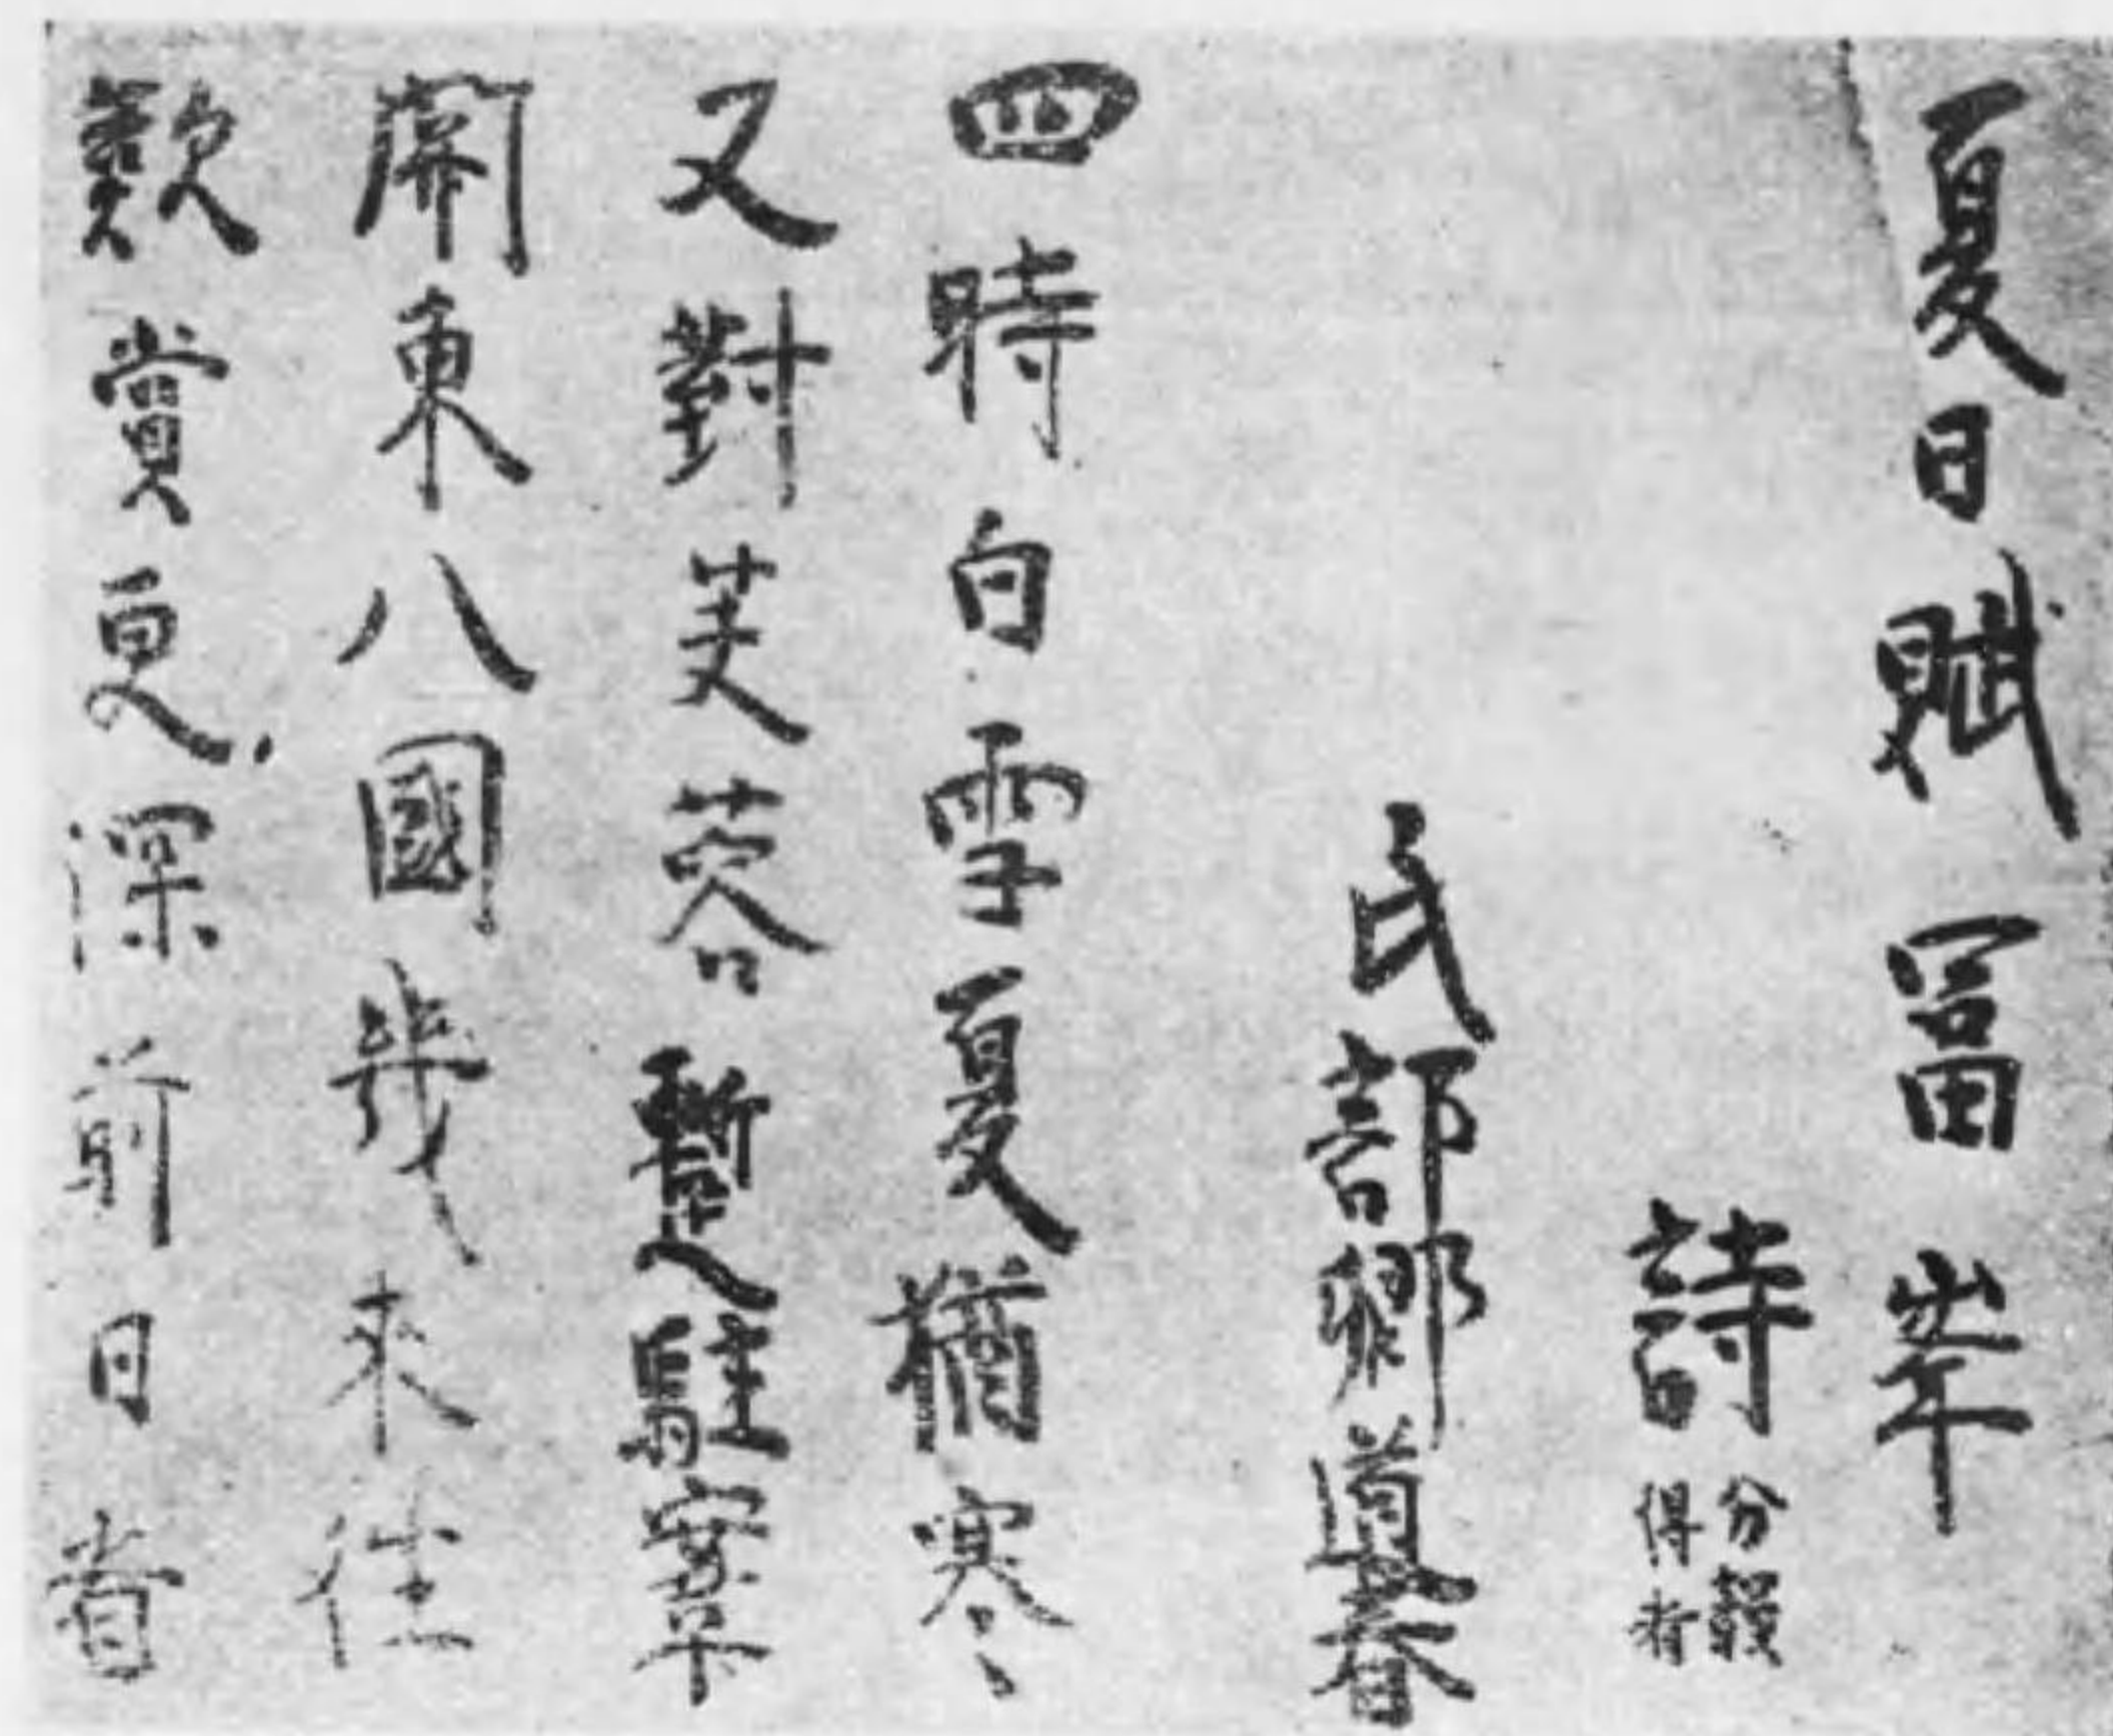 夏日賦冨峯
詩 分韻
得看
民部卿道春
四時白雪夏猶寒
又對芙蓉暫駐鞌
關東八國幾來往
歎賞更深前日看